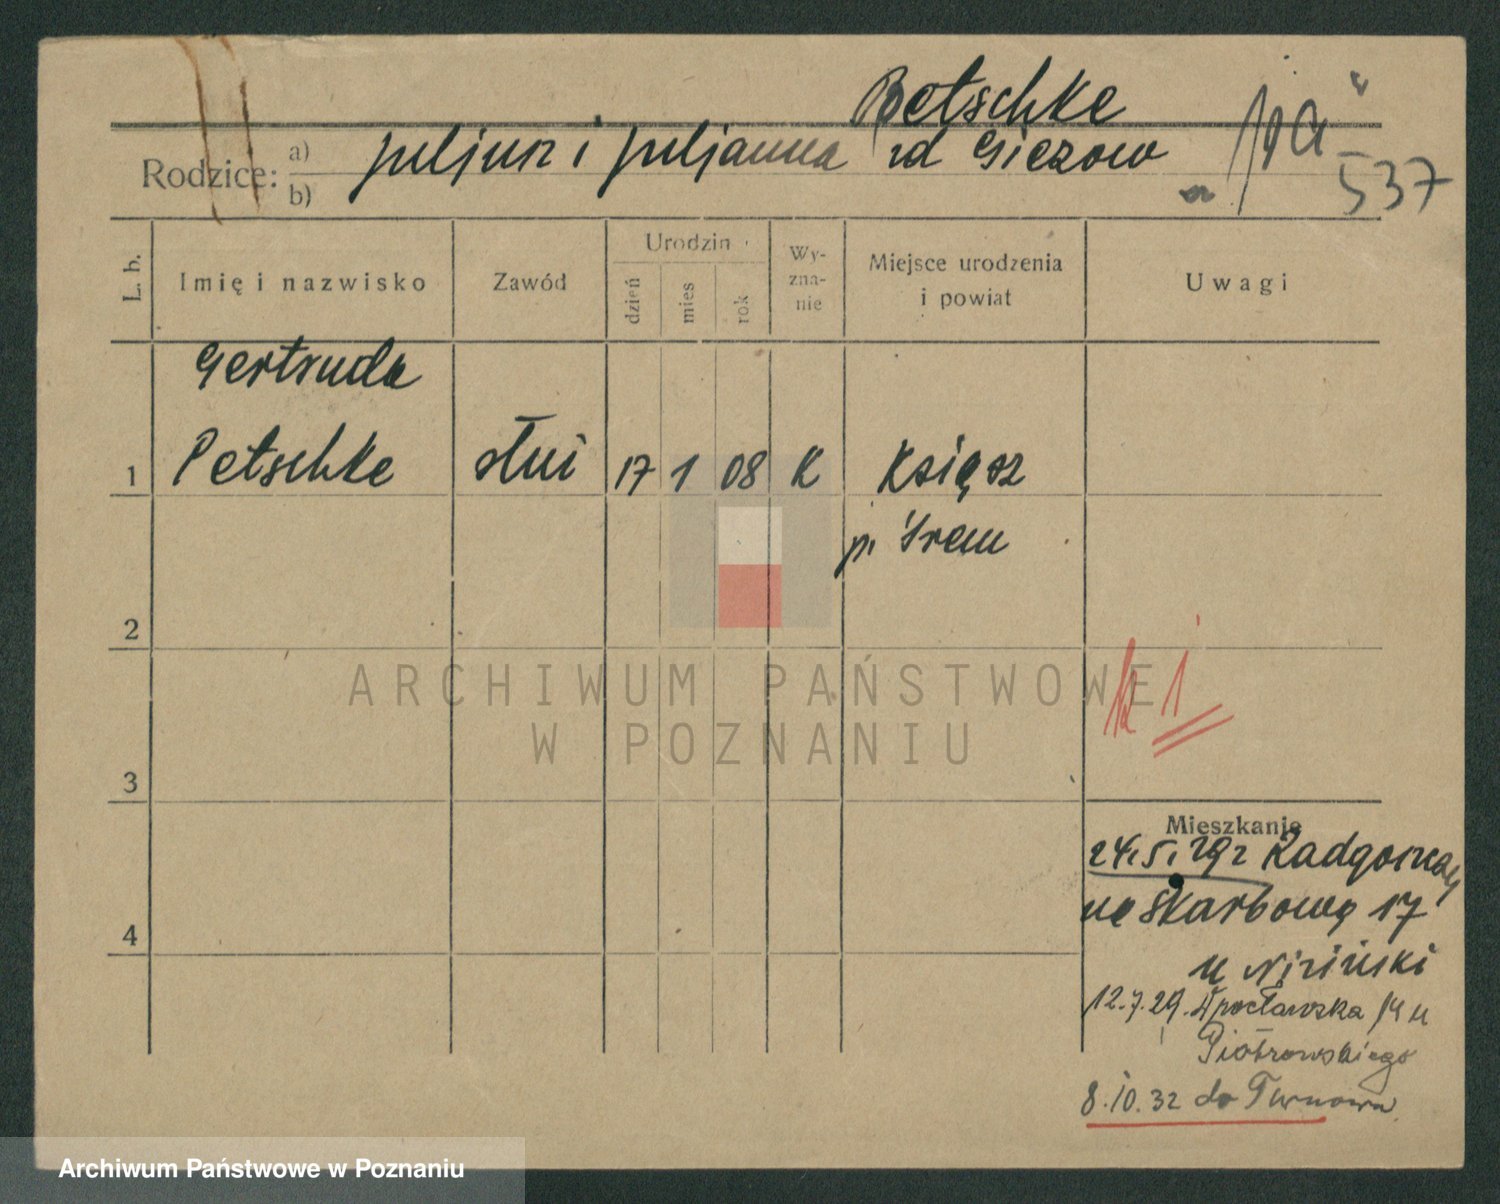 Petschke
Rodzice: a) b) Juljusz i Juljanna zd Giezow
537
L. b.
Imię i nazwisko
Zawód
Urodzin
dzień
mies
rok
Wy-
zna-
nie
Miejsce urodzenia
i powiat
Uwagi
Gertruda
1 Petschke służ 17 1 08 K Książ
p. Śrem
2
3
4
k i
Mieszkanie
24.5.29 z Radgoszczy
na Skarbową 17
u Niziński
12.7.29. Wrocławska 14 u
Piotrowskiego
8.10.32 do Turnowa
ARCHIWUM PAŃSTWOWE
W POZNANIU
Archiwum Państwowe w Poznaniu